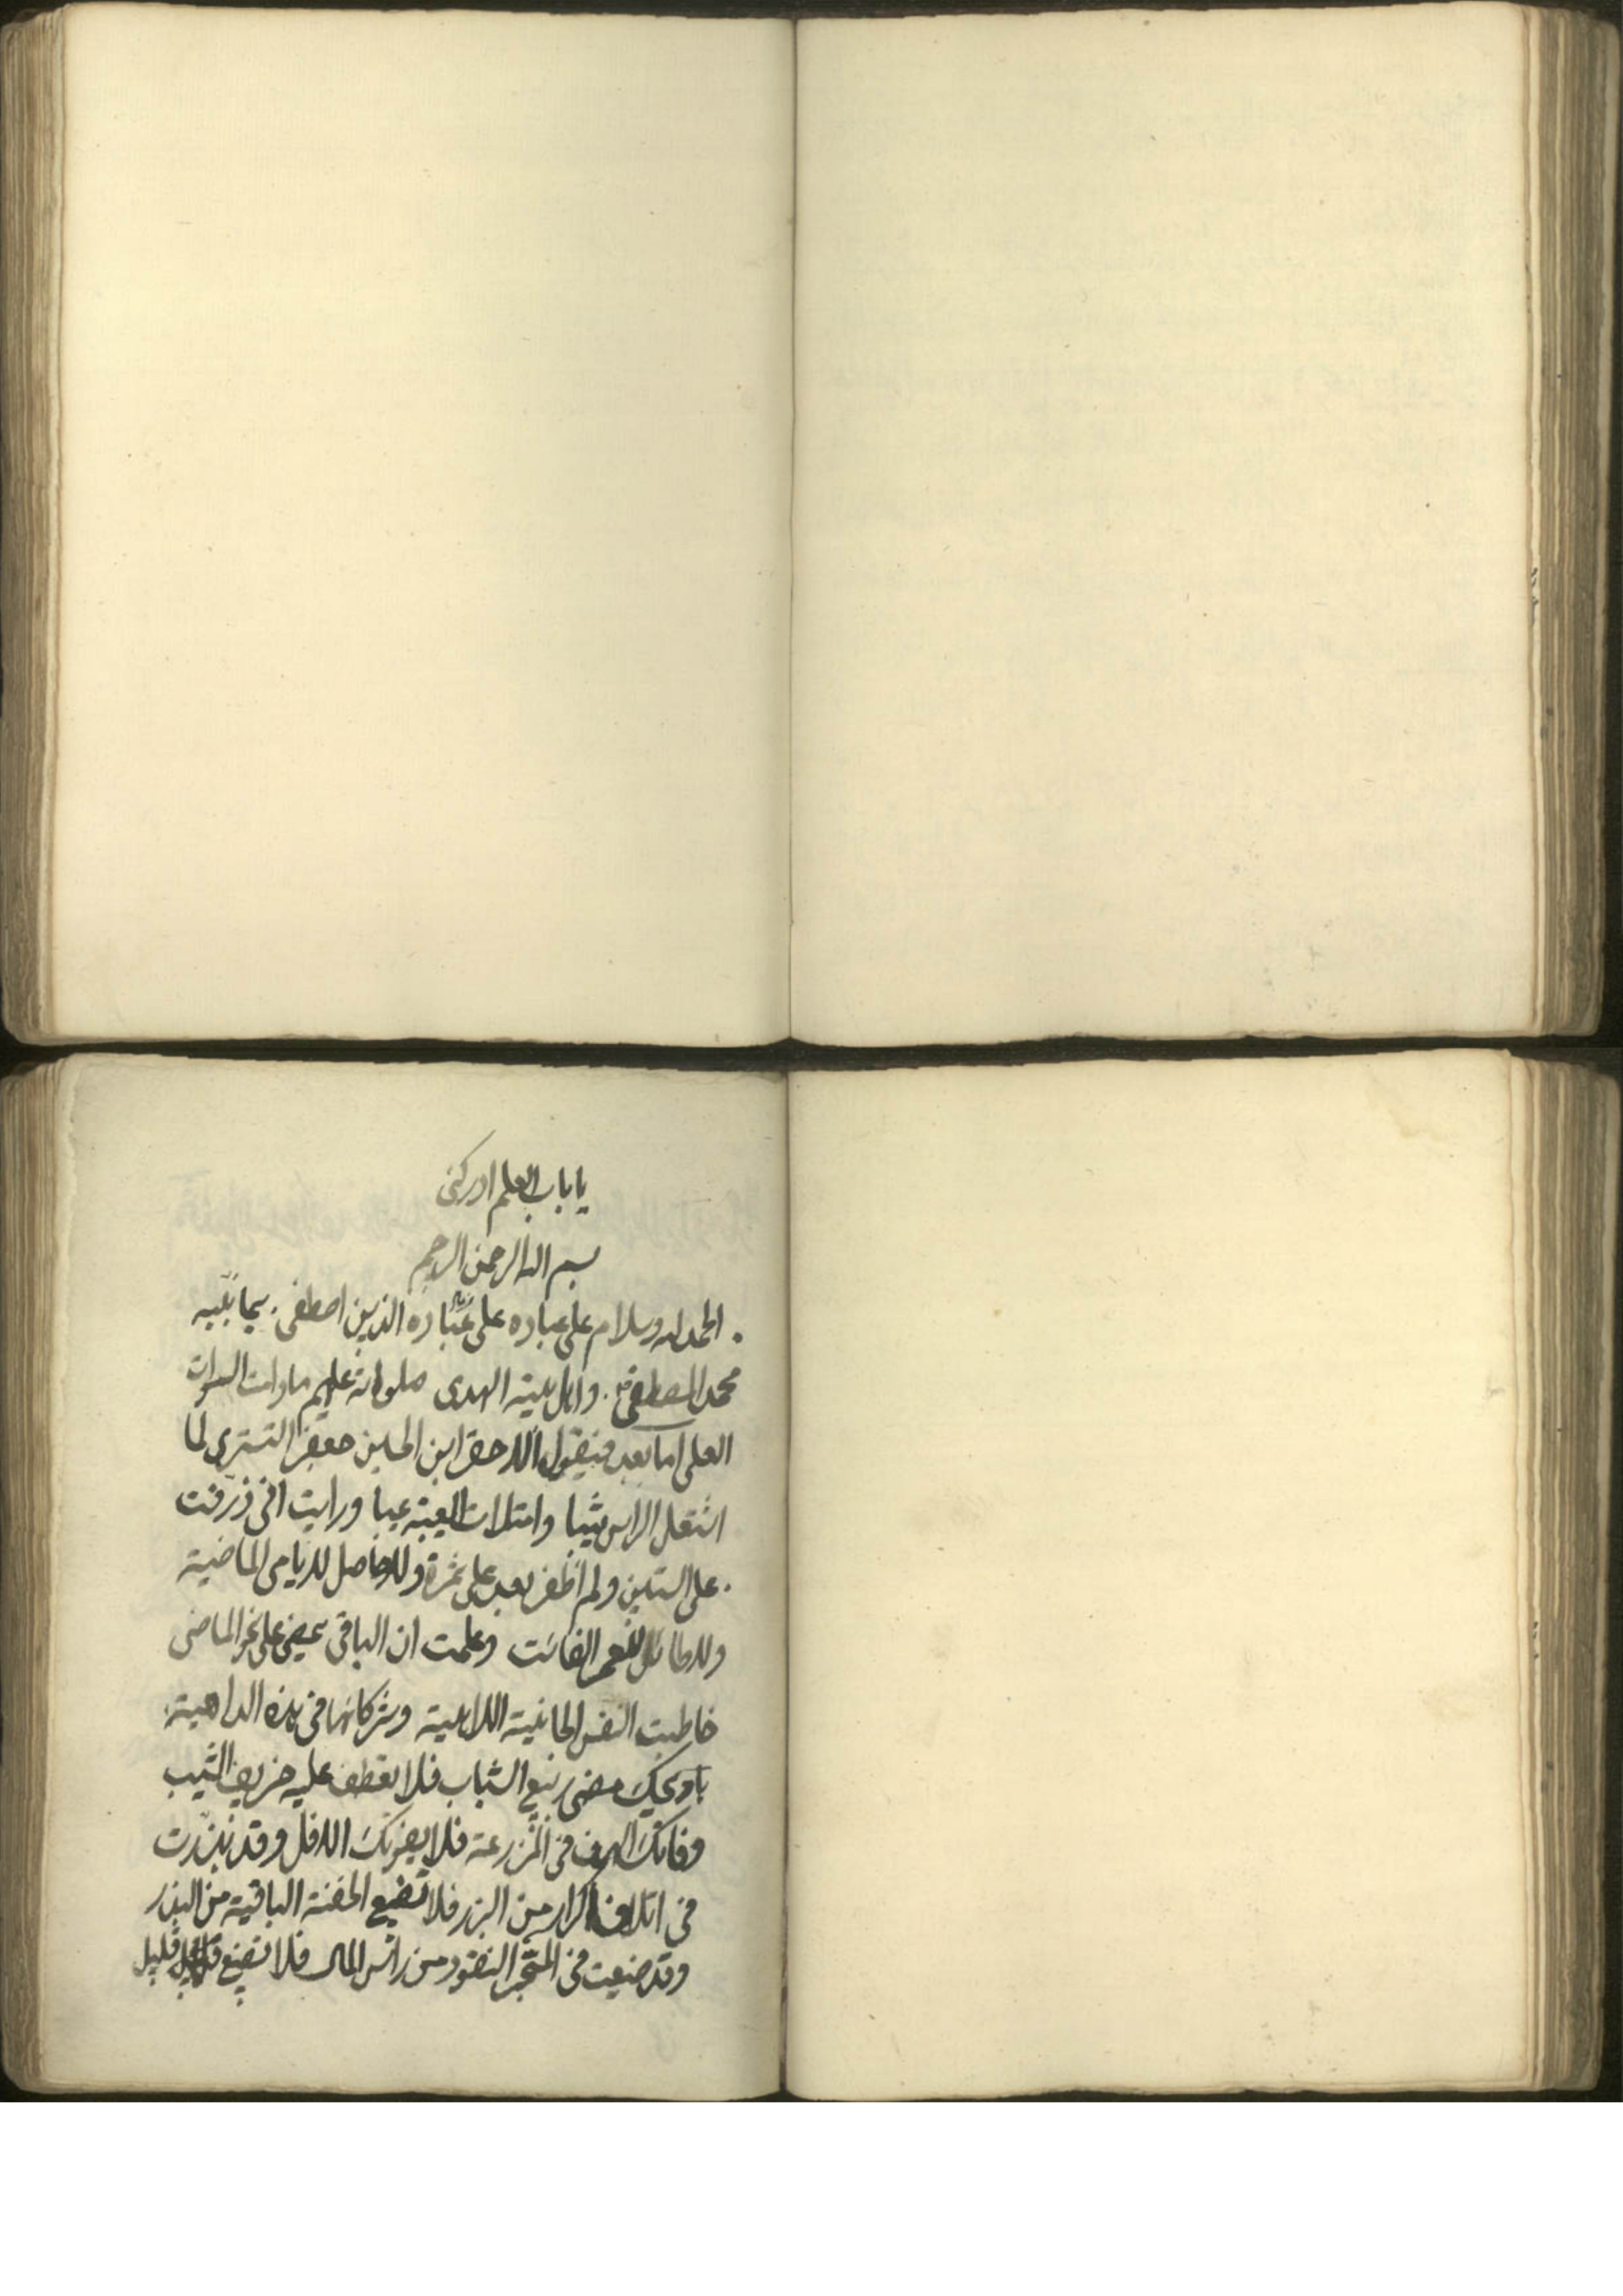 يا باب العلم ادركنى
بسم الله الرحمن الرحيم
الحمد لله وسلام على عباده على عباده الذين اصطفى. سيما نبيه
محمد المصطفى. واهل بيته الهدى صلواته عليهم ما دامت السموات
العلى اما بعد فيقول الاحقر ابن الحسين جعفر التسترى لما
اشتعل الراس شيبا وامتلات العيبة عيبا ورايت انى ذرفت
على الستين ولم اظفر بعد على ثمرة ولا حاصل لايامى الماضية
ولا طائل للعمر الفائت وعلمت ان الباقى يمضى على نحو الماضى
خاطبت النفس الجانية اللاهية وشركائها فى هذه الداهية
يا ويحك مضى ربيع الشباب فلا تعطف عليه خريف الشيب
وفاتك فى المزرعة فلا يفوتك الاقل وقد بذرت
فى اتلاف اكرار من البزر فلا تضيع الحفنة الباقية من البذر
وقد ضيعت فى المتجر النقود من راس المال فلا تضيع قليل